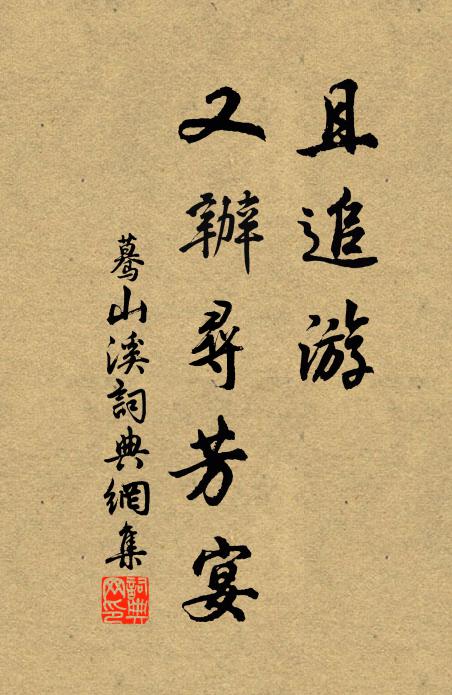 且追游
又辦尋芳宴
驀山溪詞典網集
詞典网印